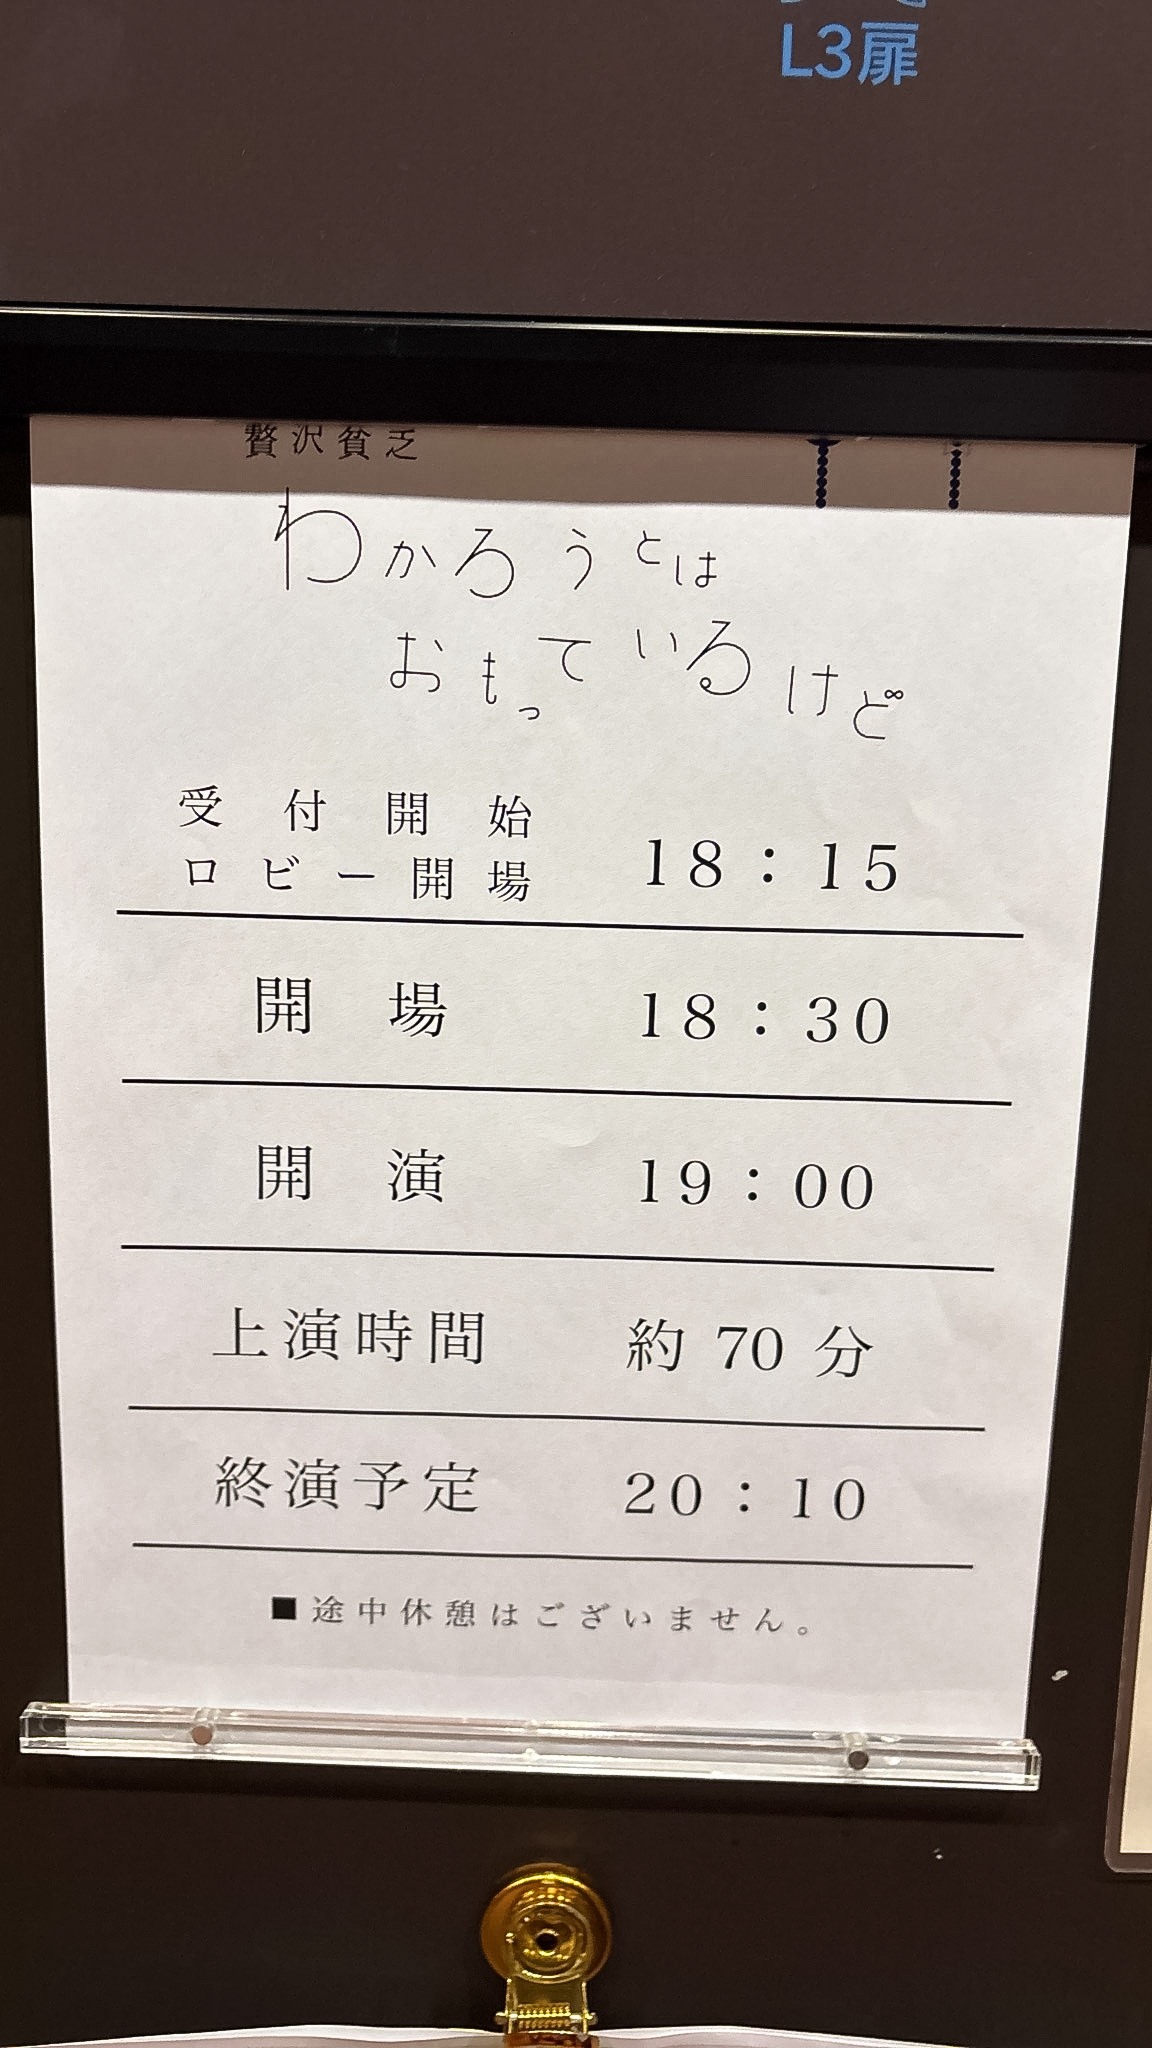 L3扉
贅沢貧乏
わかろうとは
おもっているけど
受付開始
ロビー開場 18:15
開場 18:30
開演 19:00
上演時間 約70分
終演予定 20:10
■途中休憩はございません。